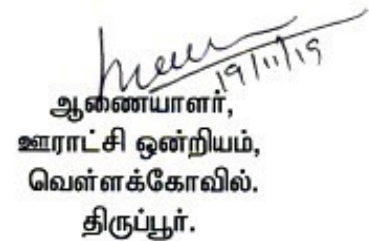 19/11/19
ஆணையாளர்,
ஊராட்சி ஒன்றியம்,
வெள்ளக்கோவில்.
திருப்பூர்.